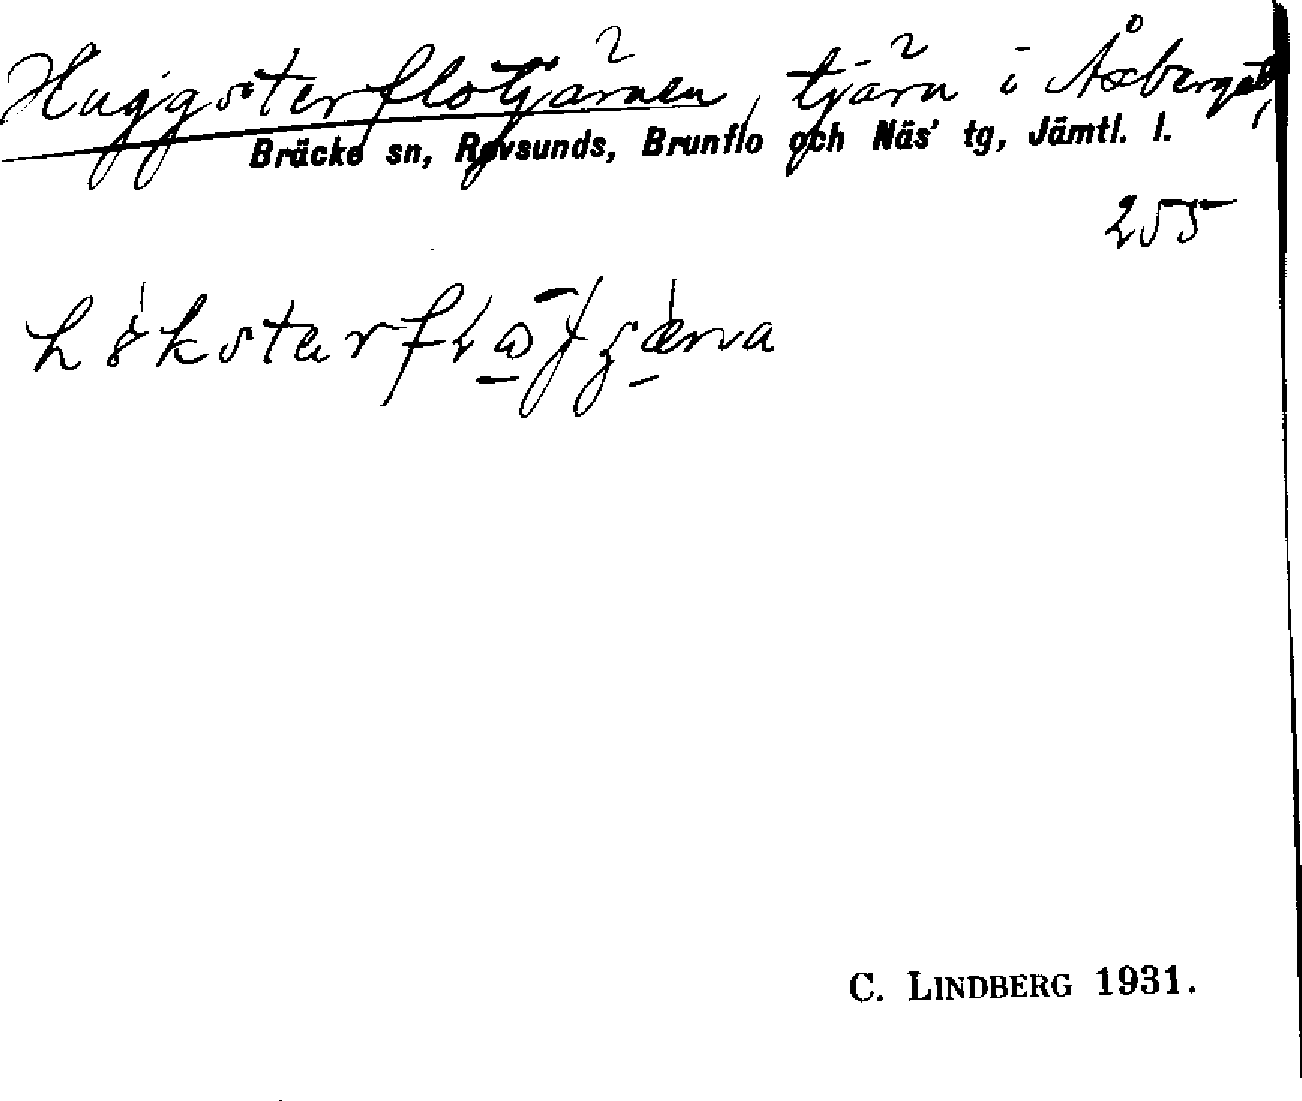 Huggsterflotjärnen, tjärn i Åxberget,
Bräcke sn, Revsunds, Brunflo och Näs' tg, Jämtl. l.
255
C. LINDBERG 1931.